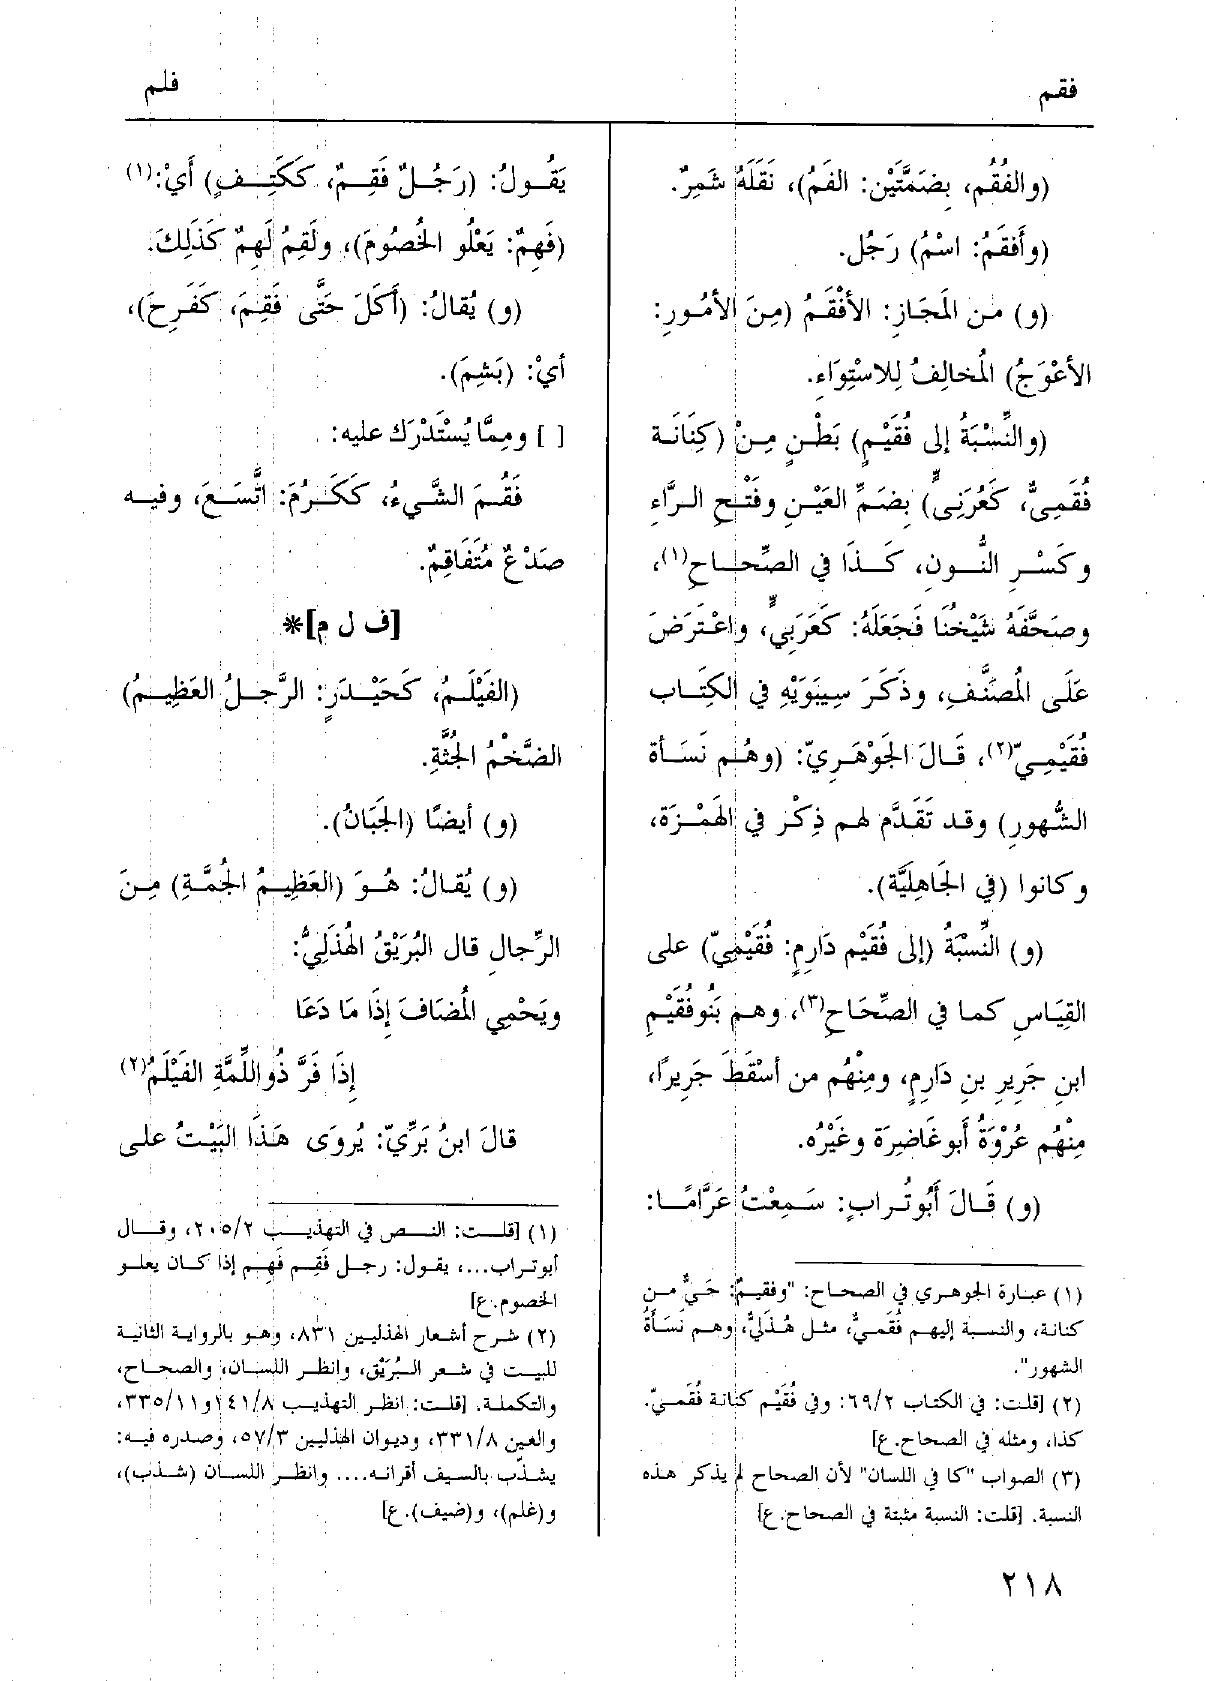 فقم
فلم
(والفُقُم، بِضَمَّتَيْن: الفَمُ)، نَقَلَهُ شَمِرٌ.
(وأَفقَمُ: اسْمُ) رَجُل.
(و) من المَجَازِ: الأَفْقَمُ (مِنَ الأُمُورِ:
الأَعْوَجُ) المُخالِفُ لِلاسْتِوَاءِ.
(والنِّسْبَةُ إلى فُقَيْمٍ) بَطْنٍ مِنْ (كِنَانَة
فُقَمِيٌّ، كَعُرَنِيٍّ) بِضَمِّ العَيْنِ وفَتْحِ الرَّاءِ
وكَسْرِ النُّونِ، كَذَا في الصِّحَاحِ(١)،
وصَحَّفَهُ شَيْخُنَا فَجَعَلَهُ: كَعَرَبِيٍّ، واعْتَرَضَ
عَلَى المُصَنَّفِ، وذَكَرَ سِيبَوَيْهِ في الكِتَاب
فُقَيْمِيّ(٢)، قَالَ الجَوْهَرِيّ: (وهُم نَسَأة
الشُّهور) وقد تَقَدَّم لهم ذِكْر في الهَمْزَة،
وكانوا (في الجَاهِلِيَّة).
(و) النِّسْبَةُ (إلى فُقَيْم دَارِمٍ: فُقَيْمِيّ) على
القِيَاسِ كما في الصِّحَاحِ(٣)، وهم بَنُو فُقَيْمِ
ابنِ جَرِيرِ بنِ دَارِمٍ، ومِنْهُم من أسْقَطَ جَرِيرًا،
مِنْهُم عُرْوَةُ أَبو غَاضِرَة وغَيْرُه.
(و) قَالَ أَبُو تُرابٍ: سَمِعْتُ عَرَّامًا:
(١) عبارة الجوهري في الصحاح: "وفقيمٌ: حَيٌّ من
كنانة، والنسبة إليهم فُقَميٌّ، مثل هُذَليٌّ، وهم نَسَأَةُ
الشهور".
(٢) [قلت: في الكتاب ٦٩/٢: وفي فُقَيْم كنانة فُقَميّ.
كذا، ومثله في الصحاح.ع]
(٣) الصواب "كا في اللسان" لأن الصحاح لم يذكر هذه
النسبة. [قلت: النسبة مثبتة في الصحاح.ع]
يَقُولُ: (رَجُلٌ فَقِمٌ، كَكَتِفٍ) أَيْ:(١)
(فَهِمٌ: يَعْلُو الخُصُومَ)، ولَقِمٌ لَهِمٌ كَذَلِكَ.
(و) يُقالُ: (أَكَلَ حَتَّى فَقِمَ، كَفَرِحَ)،
أيْ: (بَشِمَ).
[ ] ومِمَّا يُسْتَدْرَك عليه:
فَقُمَ الشَّيءُ، كَكَرُمَ: اتَّسَعَ، وفيه
صَدْعٌ مُتَفَاقِمٌ.
[ف ل م]*
(الفَيْلَمُ، كَحَيْدَرٍ: الرَّجلُ العَظِيمُ)
الضَّخْمُ الجُثَّةِ.
(و) أيضًا (الجَبَانُ).
(و) يُقالُ: هُوَ (العَظِيمُ الجُمَّةِ) مِنَ
الرِّجالِ قال البُرَيْقُ الهُذَلِيُّ:
ويَحْمِي المُضَافَ إذَا مَا دَعَا
إِذَا فَرَّ ذُو اللِّمَّةِ الفَيْلَمُ(٢)
قالَ ابنُ بَرِّيّ: يُروَى هَذَا البَيْتُ على
(١) [قلت: النص في التهذيب ٢٠٥/٢، وقال
أبوتراب...، يقول: رجل فَقِم فَهِم إذا كان يعلو
الخصوم.ع]
(٢) شرح أشعار الهذليين ٨٣١، وهو بالرواية الثانية
للبيت في شعر البُرَيْق، وانظر اللسان، والصحاح،
والتكملة. [قلت: انظر التهذيب ١٤١/٨ و٣٣٥/١١،
والعين ٣٣١/٨، وديوان الهذليين ٥٧/٣، وصدره فيه:
يشذّب بالسيف أقرانه.... وانظر اللسان (شذب)،
و(غلم)، و(ضيف).ع]
٢١٨